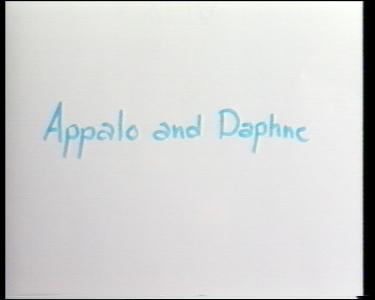 Appalo and Daphne